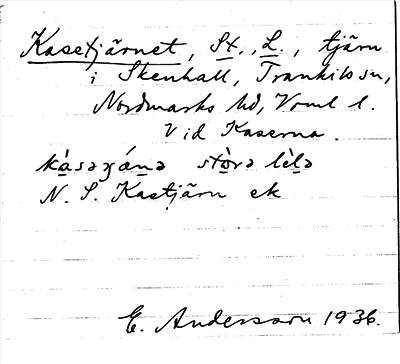 Kasetjärnet, St., L., tjärn
i Skenhall, Trankils sn,
Nordmarks hd, Vrml l.
Vid Kaserna.
kàsəʒánə stòrə lèlə
N. S. Kastjärn ek
E. Andersson 1936.